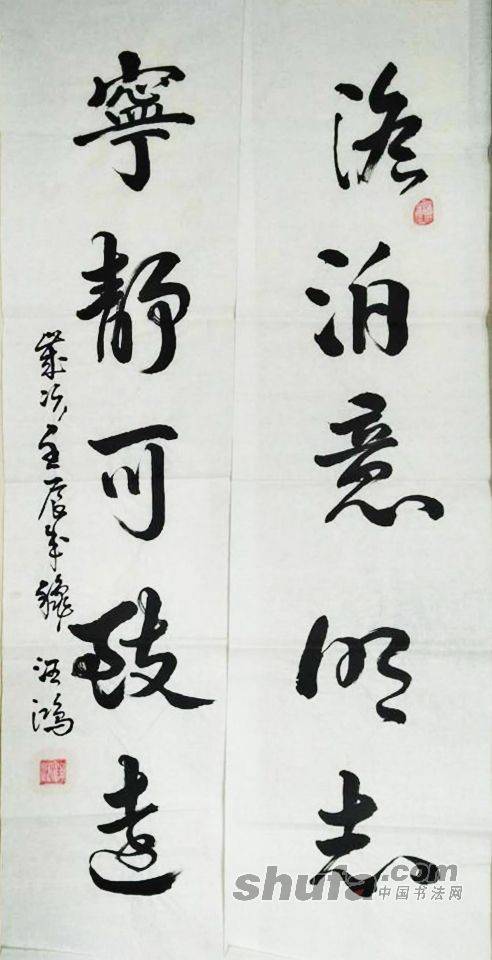 澹泊意明志
寧靜可致遠
歲次壬辰年穐 汪鴻
shufa.com
中国书法网